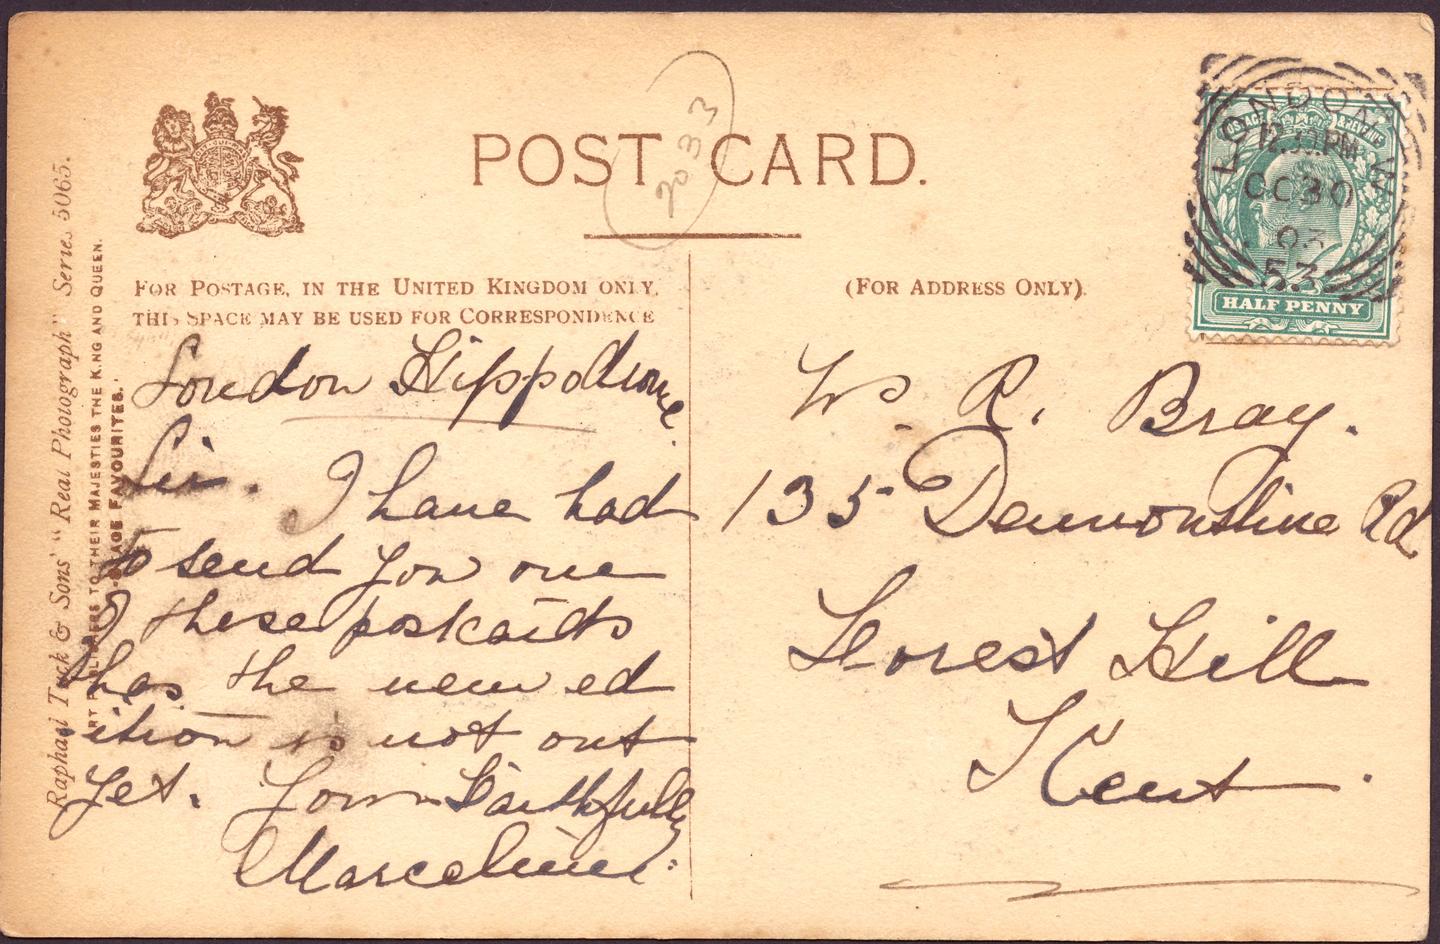 POST CARD.
20 33
FOR POSTAGE, IN THE UNITED KINGDOM ONLY,
THIS SPACE MAY BE USED FOR CORRESPONDENCE
(FOR ADDRESS ONLY).
POSTAGE & REVENUE
HALF PENNY
LONDON. W
12.30 PM
OC 30
03
53
Raphael Tuck & Sons' "Real Photograph" Series 5065.
ART PUBLISHERS TO THEIR MAJESTIES THE KING AND QUEEN.
STAGE FAVOURITES.
London Hippodrome.
Sir. I have had
to send you one
of these postcards
has the new ed
ition is not out
yet. Yours Faithfully
Marceline.
R. Bray.
135 Rd
Forest Hill
Kent.